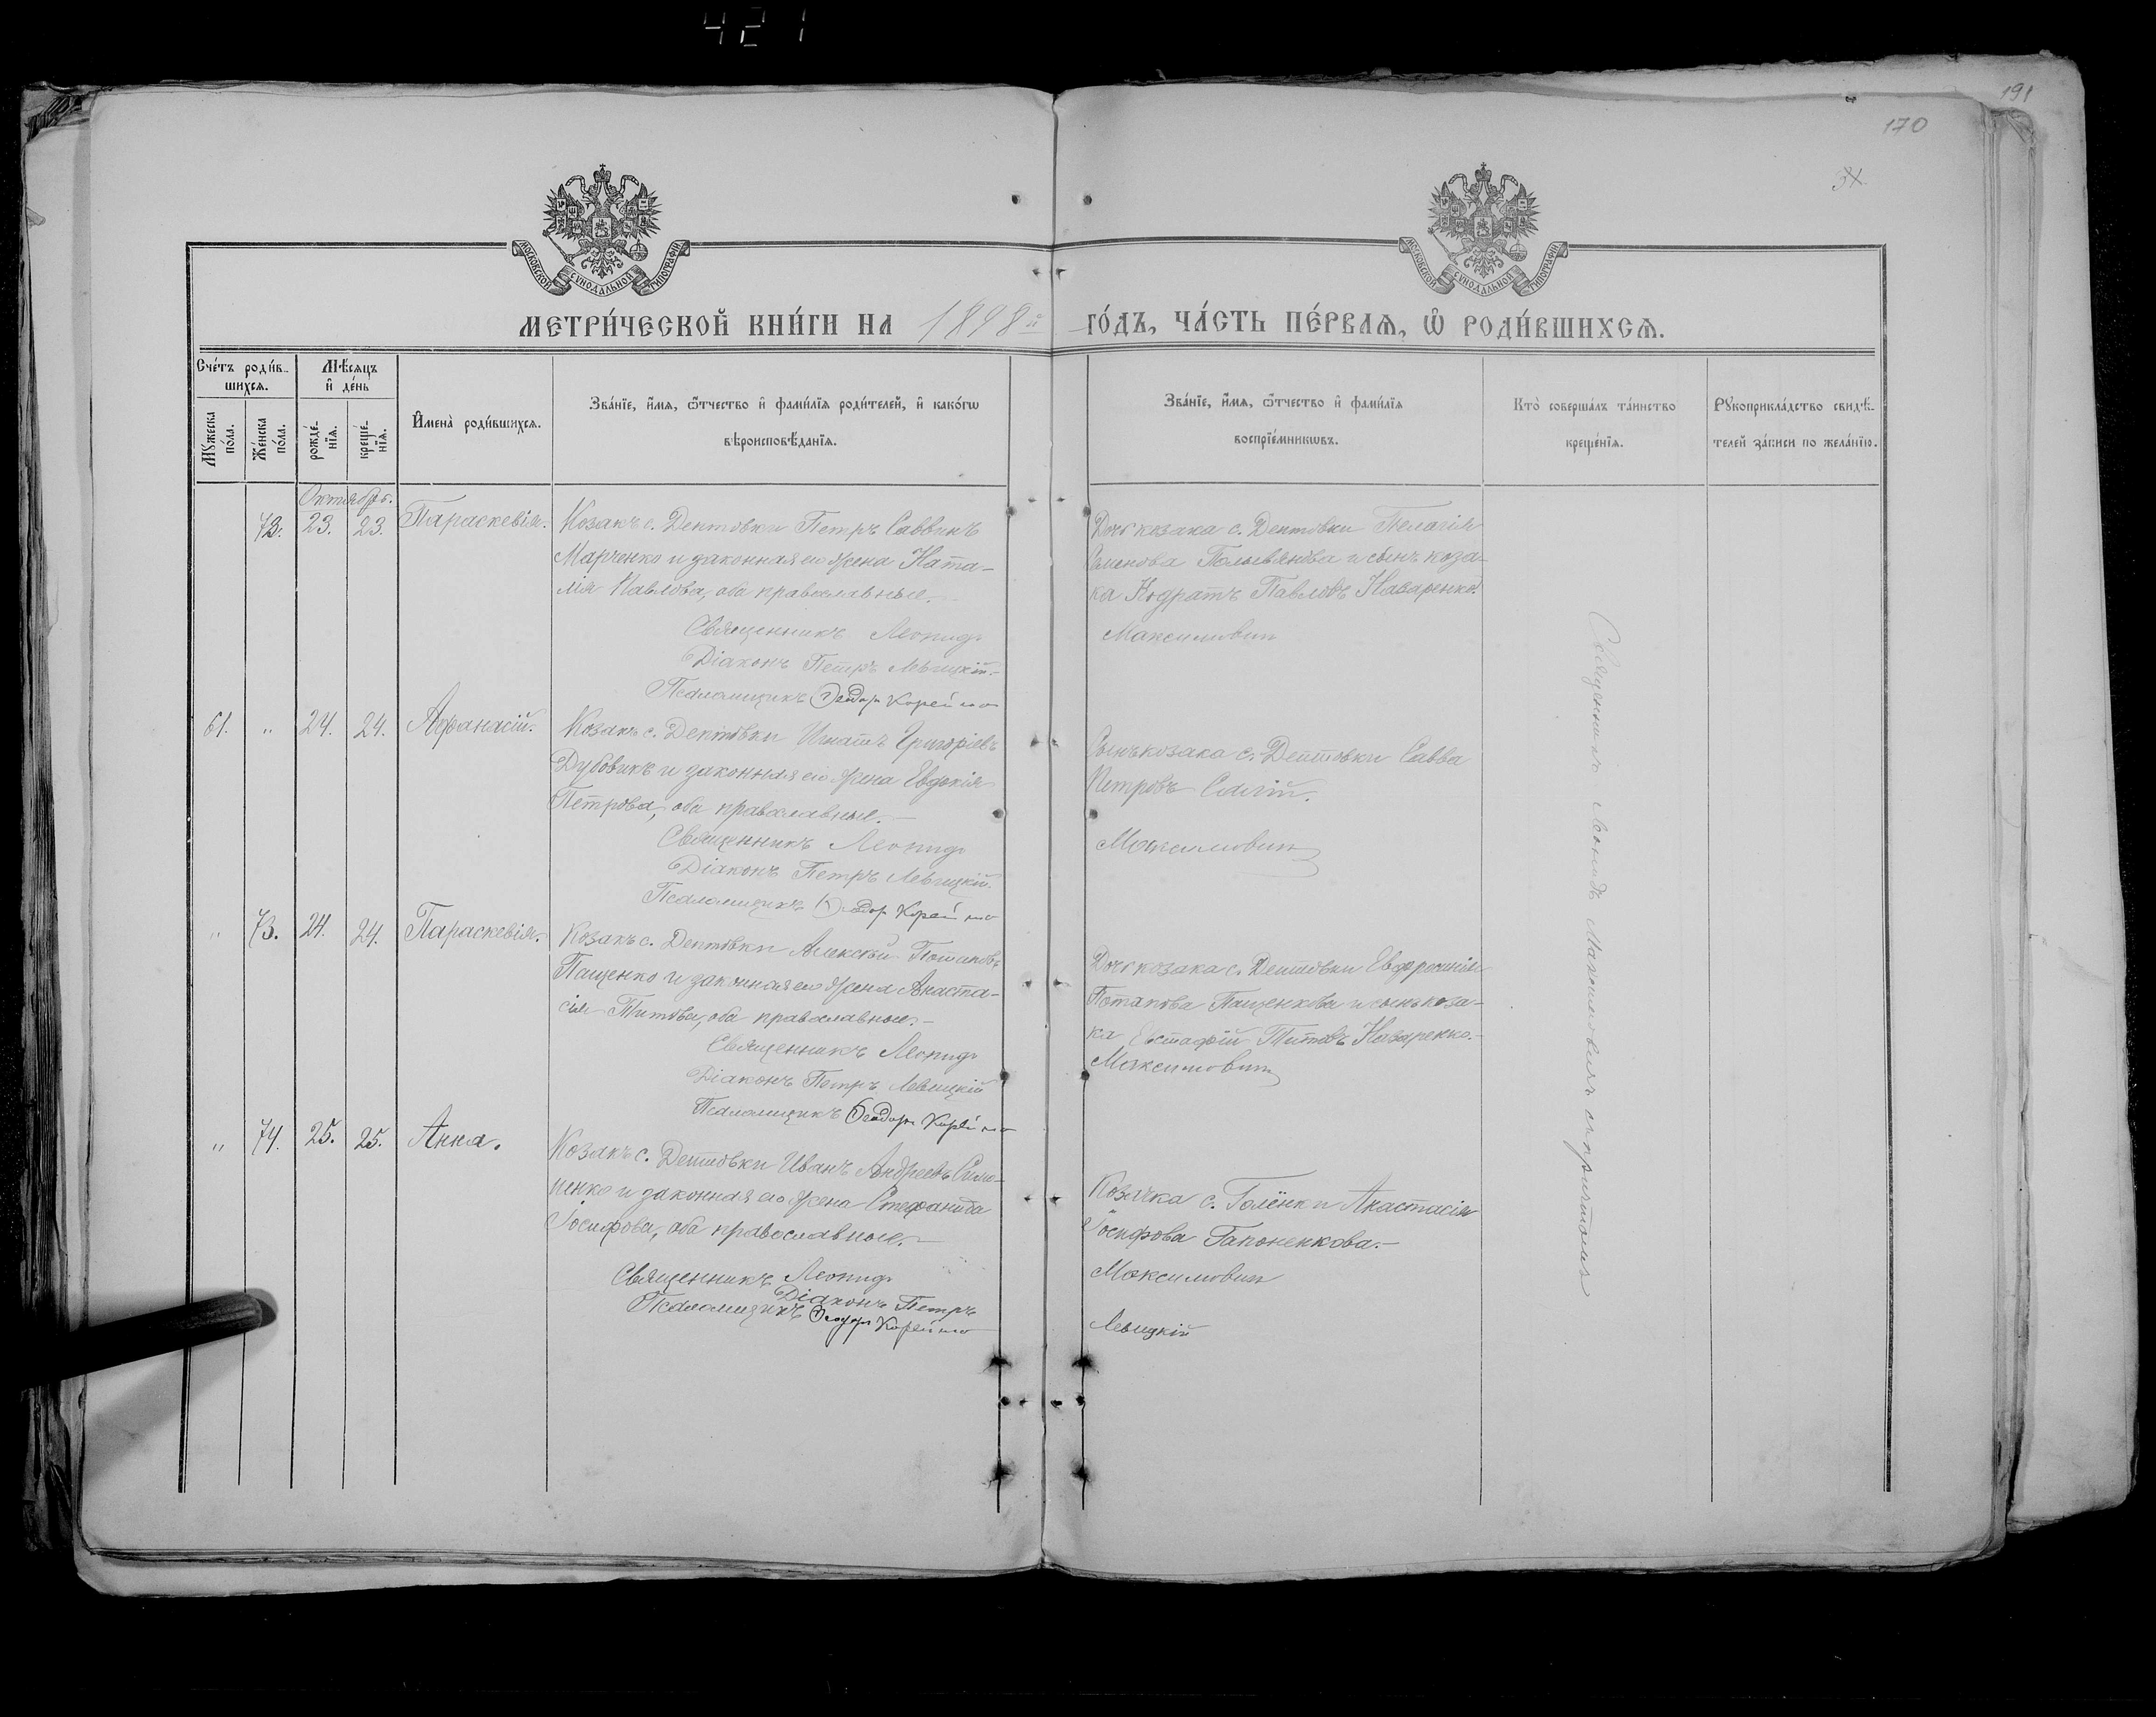 421
191
170
34
МОСКОВСКОЙ СѴНОДАЛЬНОЙ ТИПОГРАФІИ
МОСКОВСКОЙ СѴНОДАЛЬНОЙ ТИПОГРАФІИ
МЕТРИ́ЧЕСКОЙ КНИ́ГИ НА 1898й ГО́ДЪ, ЧА́СТЬ ПЕ́РВАѦ, Ѽ РОДИ́ВШИХСѦ.
Сче́тъ роди́в-
шихсѧ.
Мѣ́сѧцъ
и҆ де́нь
Мꙋжеска
по́ла.
Же́нска
по́ла.
рожде́-
нїѧ.
креще́-
нїѧ.
И҆мена̀ роди́вшихсѧ.
Зва́нїе, и҆́мѧ, ѻ҆́тчество и҆ фами́лїѧ роди́телей, и҆ како́гѡ
вѣроисповѣ́данїѧ.
Зва́нїе, и҆́мѧ, ѻ҆́тчество и҆ фами́лїѧ
воспрїе́мникѡвъ.
Кто̀ соверша́лъ та́инство
креще́нїѧ.
Рꙋкоприкла́дство свидѣ́-
телей за́писи по жела́нїю.
Октябрь.
73. 23. 23. Параскевія. Козакъ с. Дептовки Петръ Саввинъ
Марченко и законная его жена Ната-
лія Павлова, оба православные.
Священникъ Леонидъ
Діаконъ Петръ Левицкій.
Псаломщикъ Ѳеодоръ
Дочь козака с. Дептовки Пелагія
Семенова и сынъ коза-
ка Кодратъ Павловъ Назаренко.
Максимович
61. " 24. 24. Афанасій. Козакъ с. Дептовки Игнатъ Григоріевъ
Дубовикъ и законная его жена Евдокія
Петрова, оба православные.
Священникъ Леонидъ
Діаконъ Петръ Левицкій.
Псаломщикъ Ѳеодоръ
Сынъ козака с. Дептовки Савва
Петровъ
Максимович
" 73. 24. 24. Параскевія. Козакъ с. Дептовки Алексѣй Потаповъ
Пащенко и законная его жена Анаста-
сія Титова, оба православные.
Священникъ Леонидъ
Діаконъ Петръ Левицкій
Псаломщикъ Ѳеодоръ
Дочь козака с. Дептовки Евфросинія
Потапова Пащенкова и сынъ коза-
ка Евстафій Титовъ Назаренко.
Максимович
" 74. 25. 25. Анна. Козакъ с. Дептовки Иванъ Андреевъ Симо-
ненко и законная его жена Стефанида
Іосифова, оба православные.
Священникъ Леонидъ
Діаконъ Петръ
Псаломщикъ Ѳеодоръ
Козачка с. Голёнки Анастасія
Іосифова Гапоненкова.
Максимович
Левицкій
Священникъ Леонидъ Максимовичъ съ причтомъ